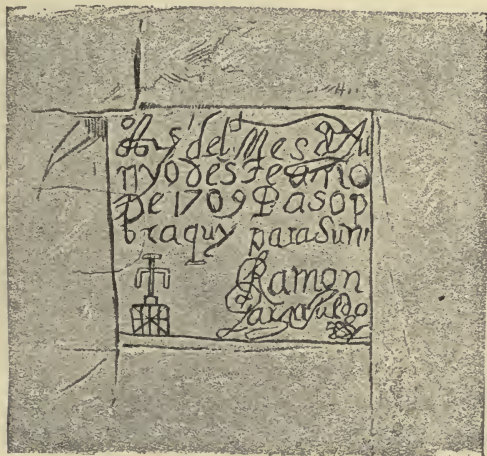 del Mes de Ju
nyo deste Año
De 1709 Paso p
or aquy para Suñi
Ramon
Garcia Jurado